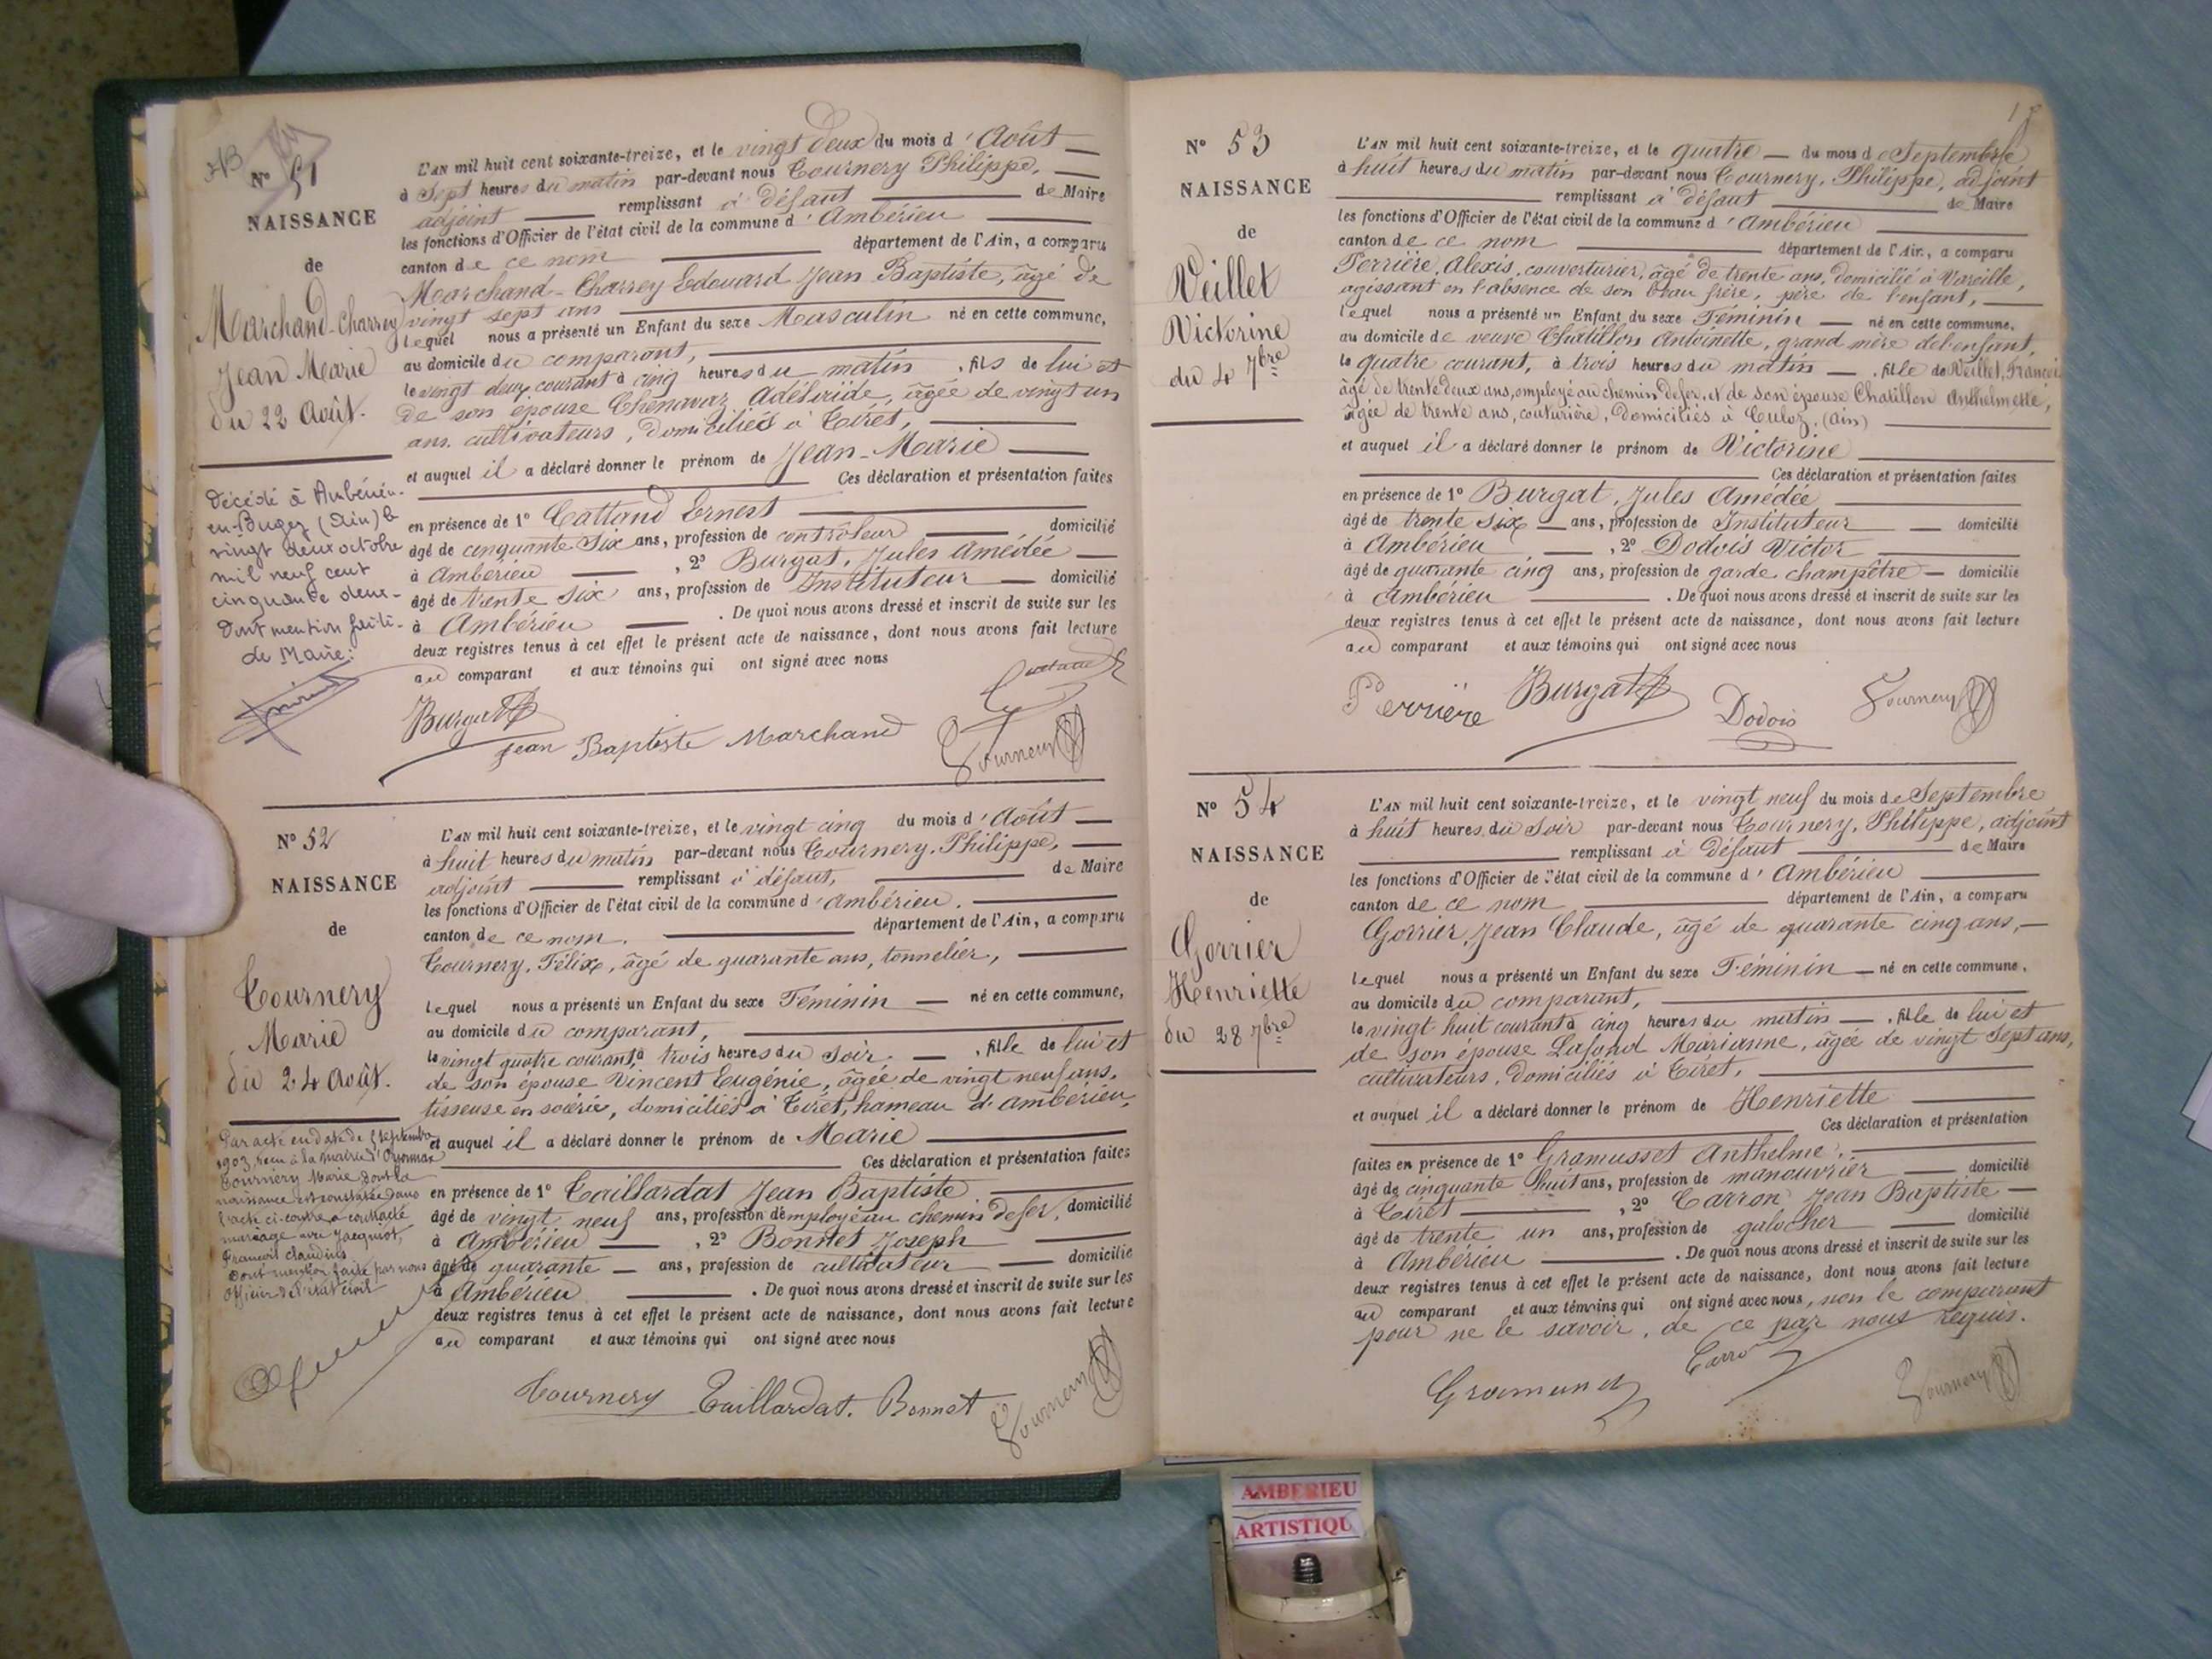 N° 51
NAISSANCE
de
Marchand-Charrey
Jean Marie
du 22 Août.
Décédé à Ambérieu-
en-Bugey (Ain) le
vingt deux octobre
mil neuf cent
cinquante deux-
Dont mention faite-
de Mairie:
L'AN mil huit cent soixante-treize, et le vingt deux du mois d'Août
à Sept heures du matin par-devant nous Tournery Philippe,
adjoint remplissant à défaut de Maire
les fonctions d'Officier de l'état civil de la commune d'Ambérieu
canton de ce nom département de l'Ain, a comparu
Marchand-Charrey Edouard Jean Baptiste, âgé de
vingt sept ans
lequel nous a présenté un Enfant du sexe Masculin né en cette commune,
au domicile du comparant,
le vingt deux courant à cinq heures du matin, fils de lui et
de son épouse Chenavaz Adélaïde, âgée de vingt un
ans, cultivateurs, domiciliés à Tiret,
et auquel il a déclaré donner le prénom de Jean-Marie
Ces déclaration et présentation faites
en présence de 1° Cattand Ernest
âgé de cinquante six ans, profession de contrôleur domicilié
à Ambérieu, 2° Burgat, Jules Amédée
âgé de trente six ans, profession de Instituteur domicilié
à Ambérieu. De quoi nous avons dressé et inscrit de suite sur les
deux registres tenus à cet effet le présent acte de naissance, dont nous avons fait lecture
au comparant et aux témoins qui ont signé avec nous
Burgat
Jean Baptiste Marchand
Tournery
N° 52
NAISSANCE
de
Tournery
Marie
du 24 Août.
Par acte en date de 5 septembre
1903, reçu à la mairie d'Oyonnax
Tournery Marie dont la
naissance est constatée dans
l'acte ci-contre a contracté
mariage avec Jacquiot,
François Claudius
Dont mention faite par nous
Officier de l'état civil
L'AN mil huit cent soixante-treize, et le vingt cinq du mois d'Août
à huit heures du matin par-devant nous Tournery, Philippe,
adjoint remplissant à défaut, de Maire
les fonctions d'Officier de l'état civil de la commune d'Ambérieu.
canton de ce nom. département de l'Ain, a comparu
Tournery, Félix, âgé de quarante ans, tonnelier,
lequel nous a présenté un Enfant du sexe Féminin né en cette commune,
au domicile du comparant,
le vingt quatre courant, à trois heures du soir, fille de lui et
de son épouse Vincent Eugénie, âgée de vingt neuf ans,
tisseuse en soierie, domiciliés à Tiret, hameau d'Ambérieu,
et auquel il a déclaré donner le prénom de Marie
Ces déclaration et présentation faites
en présence de 1° Taillardat Jean Baptiste
âgé de vingt neuf ans, profession d'employé au chemin de fer, domicilié
à Ambérieu, 2° Bonnet Joseph
âgé de quarante ans, profession de cultivateur domicilié
à Ambérieu. De quoi nous avons dressé et inscrit de suite sur les
deux registres tenus à cet effet le présent acte de naissance, dont nous avons fait lecture
au comparant et aux témoins qui ont signé avec nous
Tournery Taillardat. Bonnet Tournery
N° 53
NAISSANCE
de
Veillet
Victorine
du 4 7bre
L'AN mil huit cent soixante-treize, et le quatre du mois de Septembre
à huit heures du matin par-devant nous Tournery, Philippe, adjoint
remplissant à défaut de Maire
les fonctions d'Officier de l'état civil de la commune d'Ambérieu
canton de ce nom département de l'Ain, a comparu
Perrière, Alexis, couverturier, âgé de trente ans, domicilié à Vareille,
agissant en l'absence de son beau frère, père de l'enfant,
lequel nous a présenté un Enfant du sexe Féminin né en cette commune,
au domicile de veuve Chatillon Antoinette, grand mère de l'enfant,
le quatre courant, à trois heures du matin, fille de Veillet, François
âgé de trente deux ans, employé au chemin de fer, et de son épouse Chatillon Anthelmette,
âgée de trente ans, couturière, domiciliés à Culoz, (Ain)
et auquel il a déclaré donner le prénom de Victorine
Ces déclaration et présentation faites
en présence de 1° Burgat, Jules Amédée
âgé de trente six ans, profession de Instituteur domicilié
à Ambérieu, 2° Dodois Victor
âgé de quarante cinq ans, profession de garde champêtre domicilié
à Ambérieu. De quoi nous avons dressé et inscrit de suite sur les
deux registres tenus à cet effet le présent acte de naissance, dont nous avons fait lecture
au comparant et aux témoins qui ont signé avec nous
Perrière Burgat Dodois Tournery
N° 54
NAISSANCE
de
Gorrier
Henriette
du 28 7bre
L'AN mil huit cent soixante-treize, et le vingt neuf du mois de Septembre
à huit heures du soir par-devant nous Tournery, Philippe, adjoint
remplissant à défaut de Maire
les fonctions d'Officier de l'état civil de la commune d'Ambérieu
canton de ce nom département de l'Ain, a comparu
Gorrier, Jean Claude, âgé de quarante cinq ans,
lequel nous a présenté un Enfant du sexe Féminin né en cette commune,
au domicile du comparant,
le vingt huit courant à cinq heures du matin, fille de lui et
de son épouse Lafond Marianne, âgée de vingt sept ans,
cultivateurs, domiciliés à Tiret,
et auquel il a déclaré donner le prénom de Henriette
Ces déclaration et présentation
faites en présence de 1° Gramusset Anthelme,
âgé de cinquante huit ans, profession de manouvrier domicilié
à Tiret, 2° Carron Jean Baptiste
âgé de trente un ans, profession de galocher domicilié
à Ambérieu. De quoi nous avons dressé et inscrit de suite sur les
deux registres tenus à cet effet le présent acte de naissance, dont nous avons fait lecture
au comparant et aux témoins qui ont signé avec nous, non le comparant
pour ne le savoir, de ce par nous requis.
Carron
Tournery
AMBERIEU
ARTISTIQU